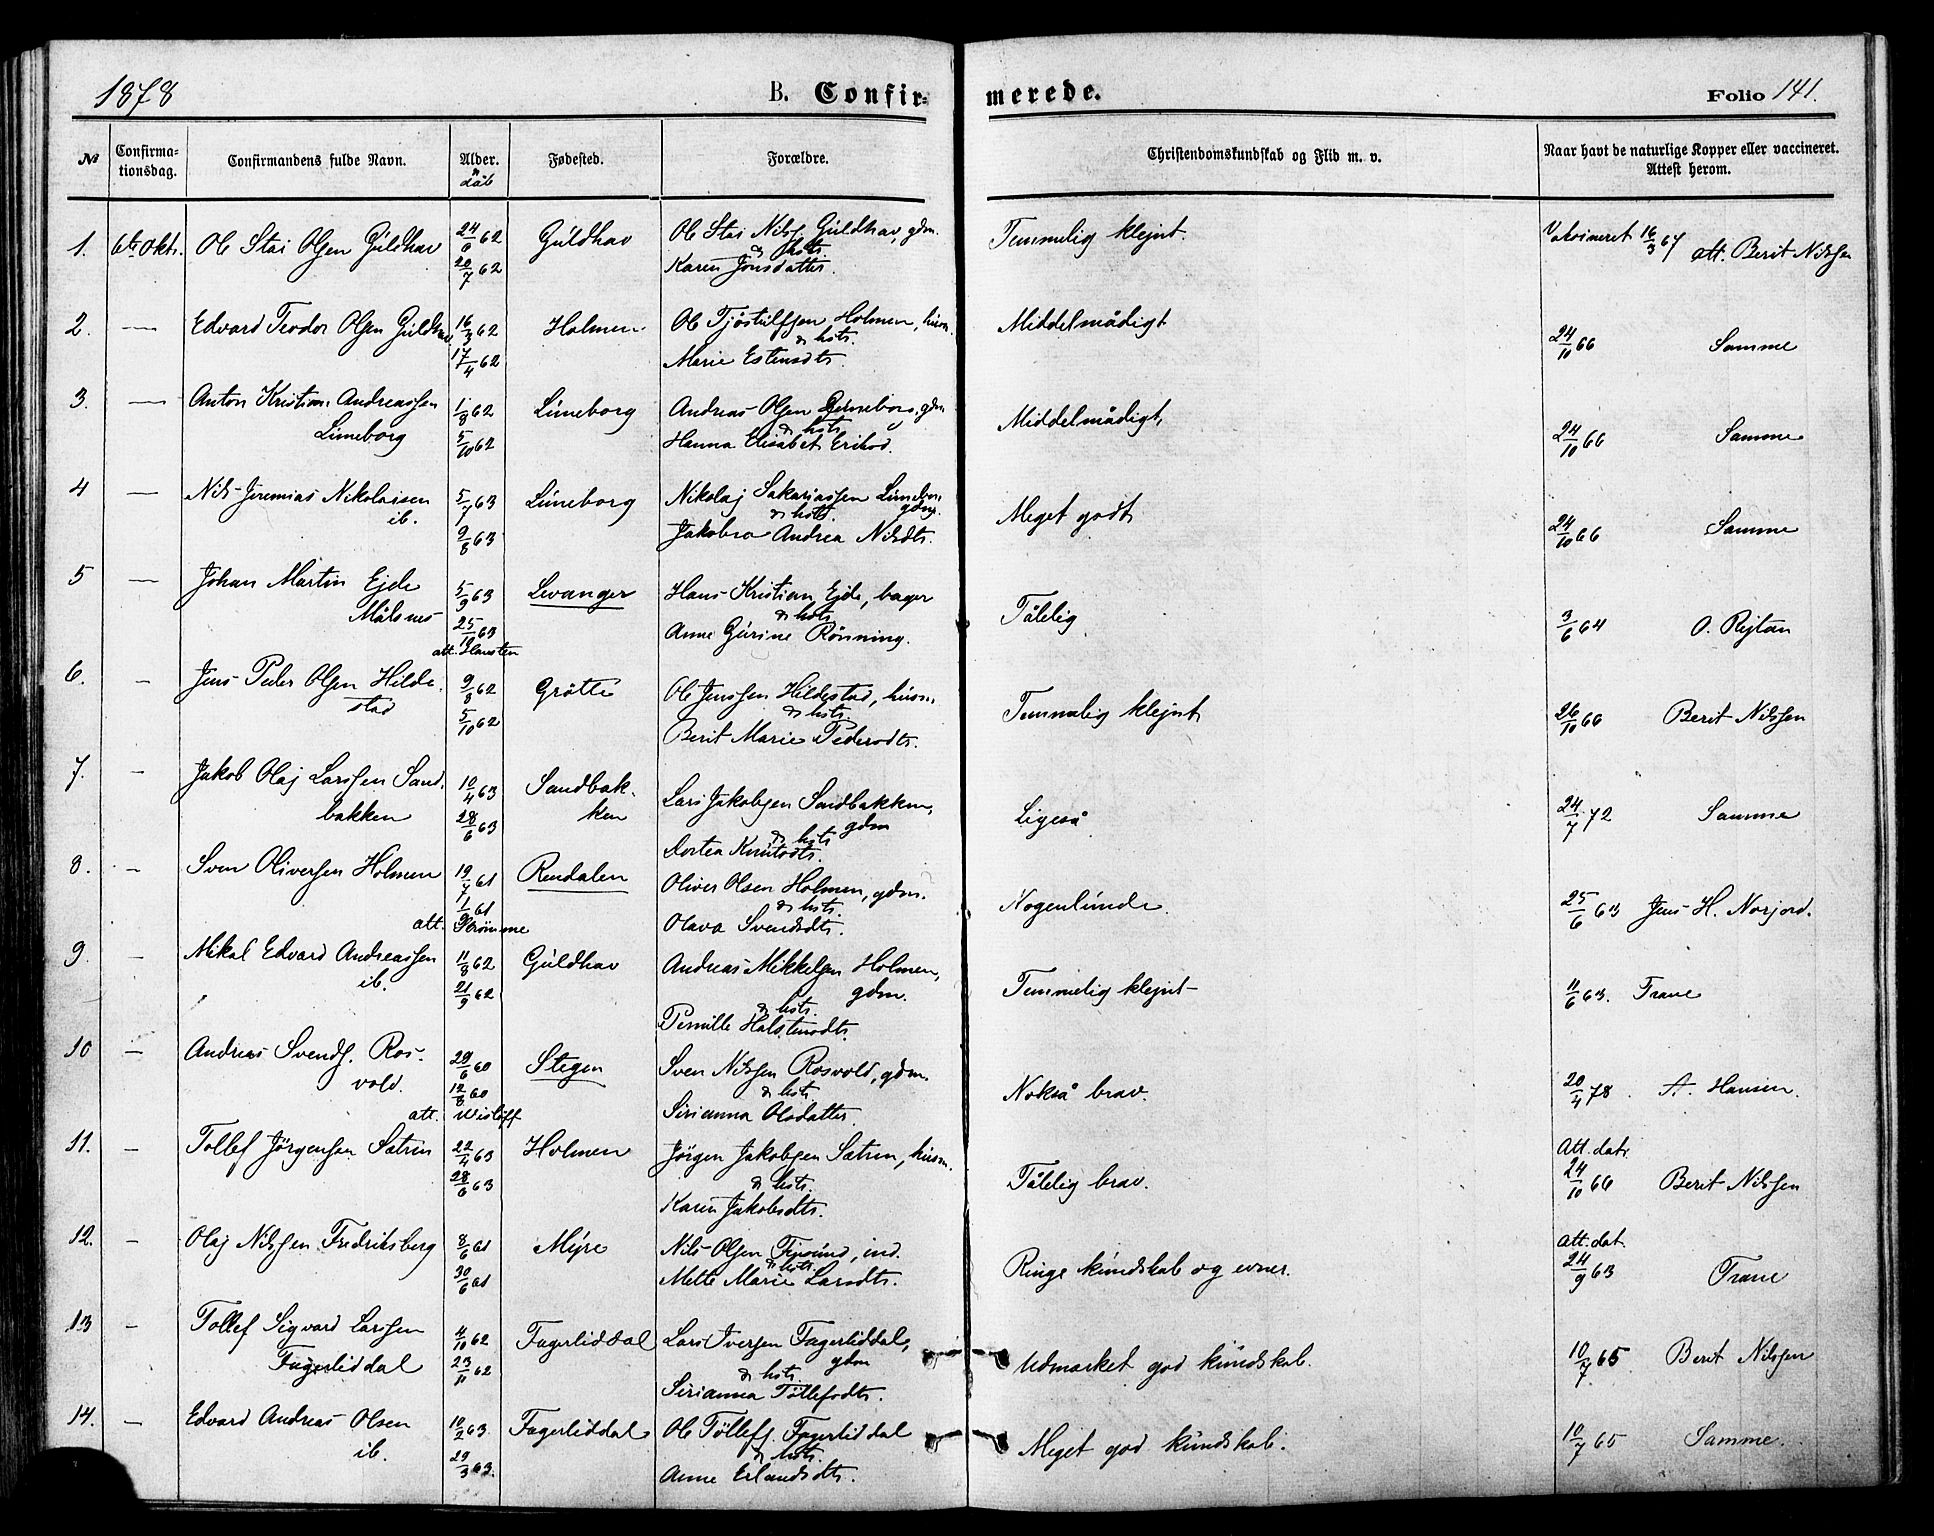 1878 B. Confir- merede. Folio 141.
№ Confirma-tionsdag. Confirmandens fulde Navn. Alder. & dåb Fødested. Forældre. Christendomskundskab og Flid m. v. Naar havt de naturlige Kopper eller vaccineret. Attest herom.
1. 6te Oktr. Ole Stai Olsen Guldhav 24/6 62 Guldhav Ole Stai Nilss. Guldhav, gdm. Temmelig klejnt. Vaksineret 16/3 67 att. Berit Nilssen
20/7 62 & hstr. Karen Jonsdatter.
2. — Edvard Teodor Olsen Guldhav 16/3 62 Holmen Ole Tjøstulfsen Holmen, husm. Middelmådigt 24/10 66 Samme
17/4 62 & hstr. Marie Estensdtr.
3. — Anton Kristian Andreassen 1/8 62 Limeborg Andreas Olsen Limeborg, gdm. Middelmådigt, 24/10 66 Samme
Limeborg 5/10 62 & hstr. Hanna Elisabet Eriksd.
4 — Nils Jeremias Nikolaisen 5/7 63 Limeborg Nikolaj Sakariassen Limeborg gdm. Meget godt 24/10 66 Samme
ib. 9/8 63 & hstr. Jakobra Andrea Nilsdtr.
5 — Johan Martin Ejde 5/9 63 Levanger Hans Kristian Ejde, bager Tålelig 3/6 64 O. Rejtan
Målsnes 25/12 63 & hstr. Anne Gurine Rönning.
att. Hansten
6. — Jens Peder Olsen Hilde- 9/8 62 Gråtli Ole Jenssen Hildestad, husm. Temmelig klejnt 26/10 66 Berit Nilssen
stad 5/10 62 & hstr. Berit Marie Pedersdtr.
7. — Jakob Olaj Larssen Sand- 10/4 63 Sandbak- Lars Jakobsen Sandbakken, gdm Ligeså 24/7 72 Samme
bakken 28/6 63 ken & hstr. Dortea Knutsdtr.
8. — Sven Oliversen Holmen 19/7 61 Rendalen Oliver Olsen Holmen, gdm. Nogenlunde. 25/6 63 Jens H. Norjord.
1/9 61 & hstr. Olava Svendsdtr.
att. Strömme
9. — Mikal Edvard Andreassen 11/8 62 Guldhav Andreas Mikkelsen Holmen, gdm. Temmelig klejnt 11/6 63. Trane
ib. 21/9 62 & hstr. Pernille Halstensdtr.
10 — Andreas Svends. Ros- 29/6 60 Stegen Sven Nilssen Rosvold, gdm. Nokså brav. 20/4 78. A. Hansen.
vold. 12/8 60 & hstr. Sirianna Olsdatter.
att. Wislöff
11. — Tollef Jörgensen Sætrin 22/4 63 Holmen Jörgen Jakobsen Sætrin, husm. Tålelig brav. Att. dat. 24/10 66 Berit Nilssen
28/6 63 & hstr. Karen Jakobsdtr.
12. — Olaj Nilssen Fredriksberg 8/6 61 Mýre Nils Olsen Finsund, ind. Ringe kundskab og evner. Att. dat. 24/9 63 Trane
30/6 61 & hstr. Mette Marie Larsdtr.
13 — Tollef Sigvard Larssen 4/10 62 Fagerliddal Lars Iversen Fagerliddal, gdm Udmærket god kundskab. 10/7 65 Berit Nilssen
Fagerliddal 23/11 62 & hstr. Sirianna Töllefsdtr.
14. — Edvard Andreas Olsen 10/2 63. Fagerliddal Ole Töllefs. Fagerliddal Meget god kundskab. 10/7 65 Samme.
ib. 29/3 63. & hstr. Anne Erlandsdtr.